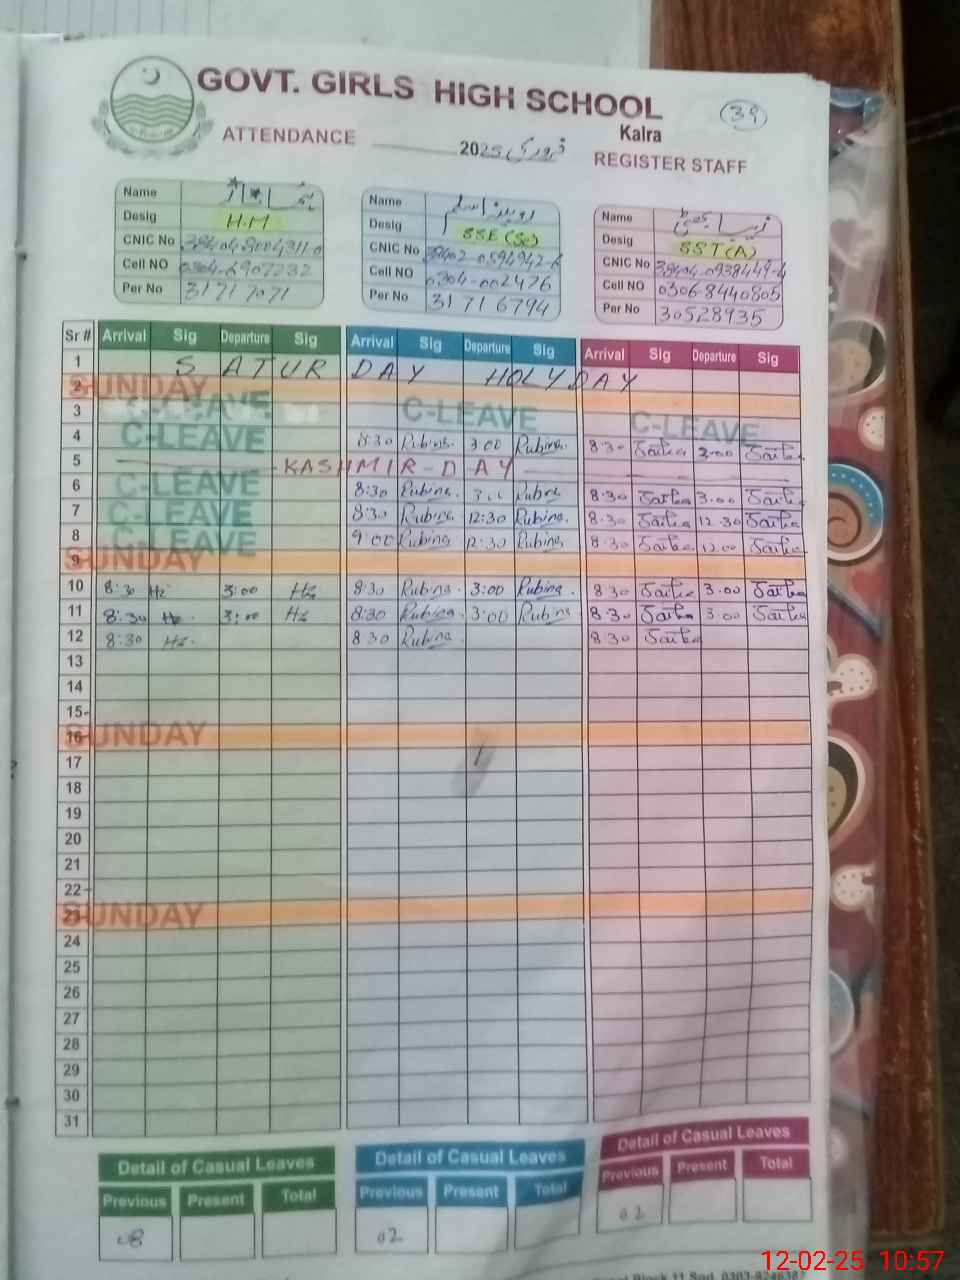 GOVT. GIRLS HIGH SCHOOL
39
Kalra
ATTENDANCE 2025 فروری REGISTER STAFF
Name
Desig H.M
CNIC No
Cell NO
Per No 31717071
Name روبینہ اسلم
Desig SSE (Sc)
CNIC No
Cell NO 0304-002476
Per No 31716794
Name
Desig SST (A)
CNIC No 38404-0938449-6
Cell NO 03068440805
Per No 30528935
Sr # Arrival Sig Departure Sig Arrival Sig Departure Sig Arrival Sig Departure Sig
1 SATUR DAY HOLYDAY
2 SUNDAY
3 C-LEAVE C-LEAVE C-LEAVE
4 C-LEAVE 8:30 Rubina. 3:00 Rubina. 8:30 3:00
5 KASHMIR-DAY
6 C-LEAVE 8:30 Rubina. 8:30 3.00
7 C-LEAVE 8:30 Rubina. 12:30 Rubina. 8:30 12:30
8 C-LEAVE 9:00 Rubina. 12:30 Rubina. 8:30 12:00
9 SUNDAY
10 8:30 Hz 3:00 Hz 8:30 Rubina. 3:00 Rubina. 8:30 3.00
11 8:30 Hz 3:00 Hz 8:30 Rubina. 3:00 Rubina. 8:30 3:00
12 8:30 Hz. 8:30 Rubina. 8:30
13
14
15
16 SUNDAY
17
18
19
20
21
22
23 SUNDAY
24
25
26
27
28
29
30
31
Detail of Casual Leaves Detail of Casual Leaves Detail of Casual Leaves
Previous Present Total Previous Present Total Previous Present Total
08 02 02
12-02-25 10:57